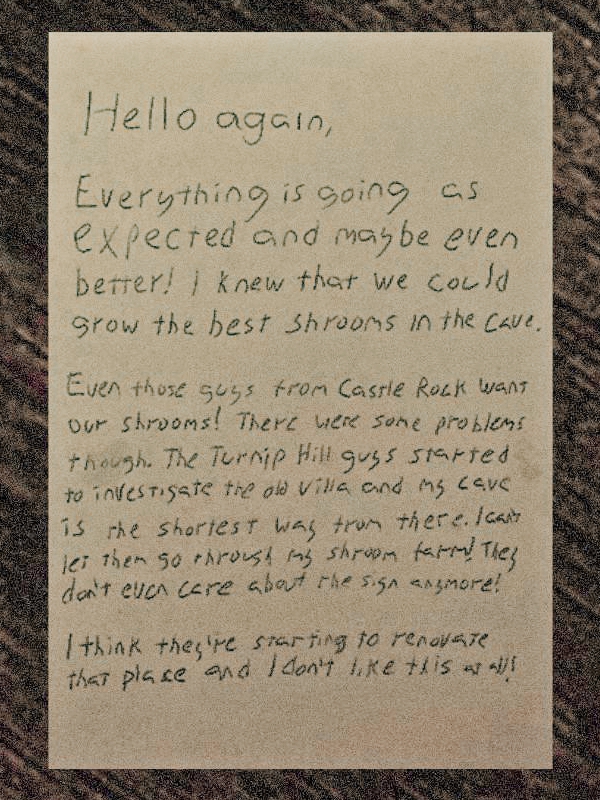 Hello again,
Everything is going as
expected and maybe even
better! I knew that we could
grow the best shrooms in the cave.
Even those guys from Castle Rock want
our shrooms! There were some problems
though. The Turnip Hill guys started
to investigate the old villa and my cave
is the shortest way from there. I can't
let them go through my shroom farm! They
don't even care about the sign anymore!
I think they're starting to renovate
that place and I don't like this at all!